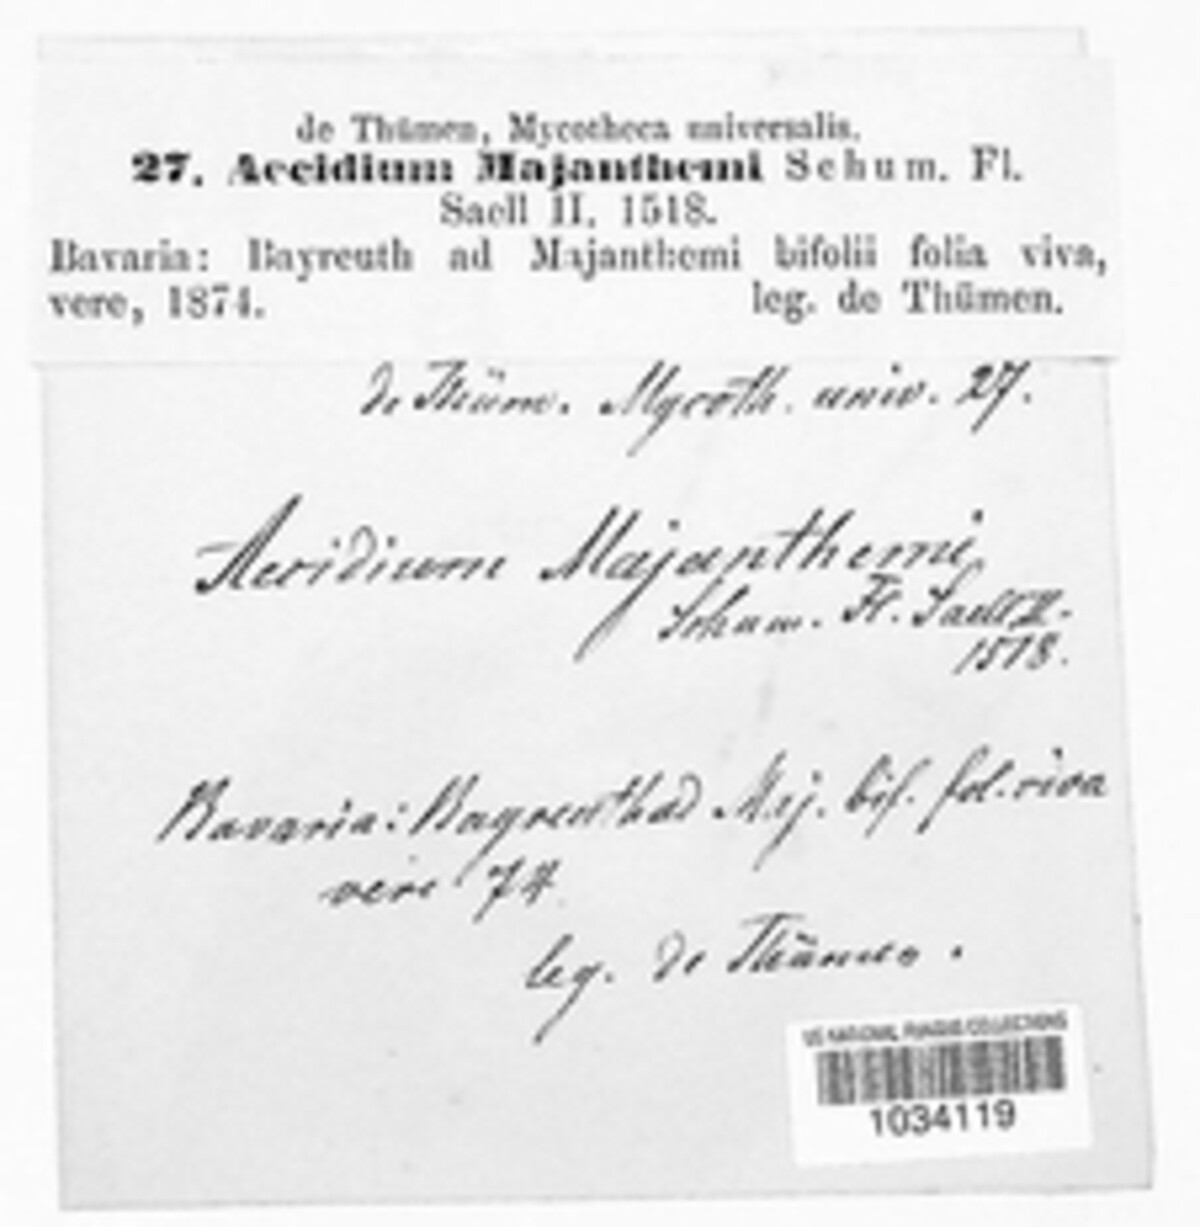 de Thümen, Mycotheca universalis.
27. Aecidium Majanthemi Schum. Fl.
Saell II, 1518.
Bavaria: Bayreuth ad Majanthemi bifolii folia viva,
vere, 1874. leg. de Thümen.
de Thüm. Mycoth. univ. 27.
Aecidium Majanthemi
Schum. Fl. Saell II.
1518.
Bavaria: Bayreuth ad Maj. bif. fol. viva
vere 74
leg. de Thümen.
US NATIONAL FUNGUS COLLECTIONS
1034119